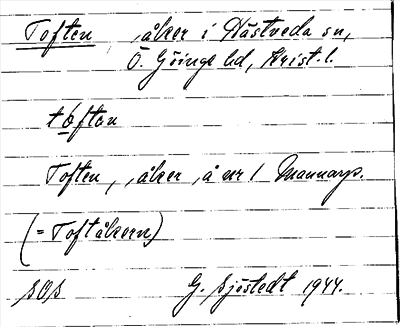 Toften, åker i Hästveda sn,
Ö. Göinge hd, Krist. l.
tòftən
Toften, åker, å nr 1 Mannarp.
(= Toftåkern)
SOS G. Sjöstedt 1944.